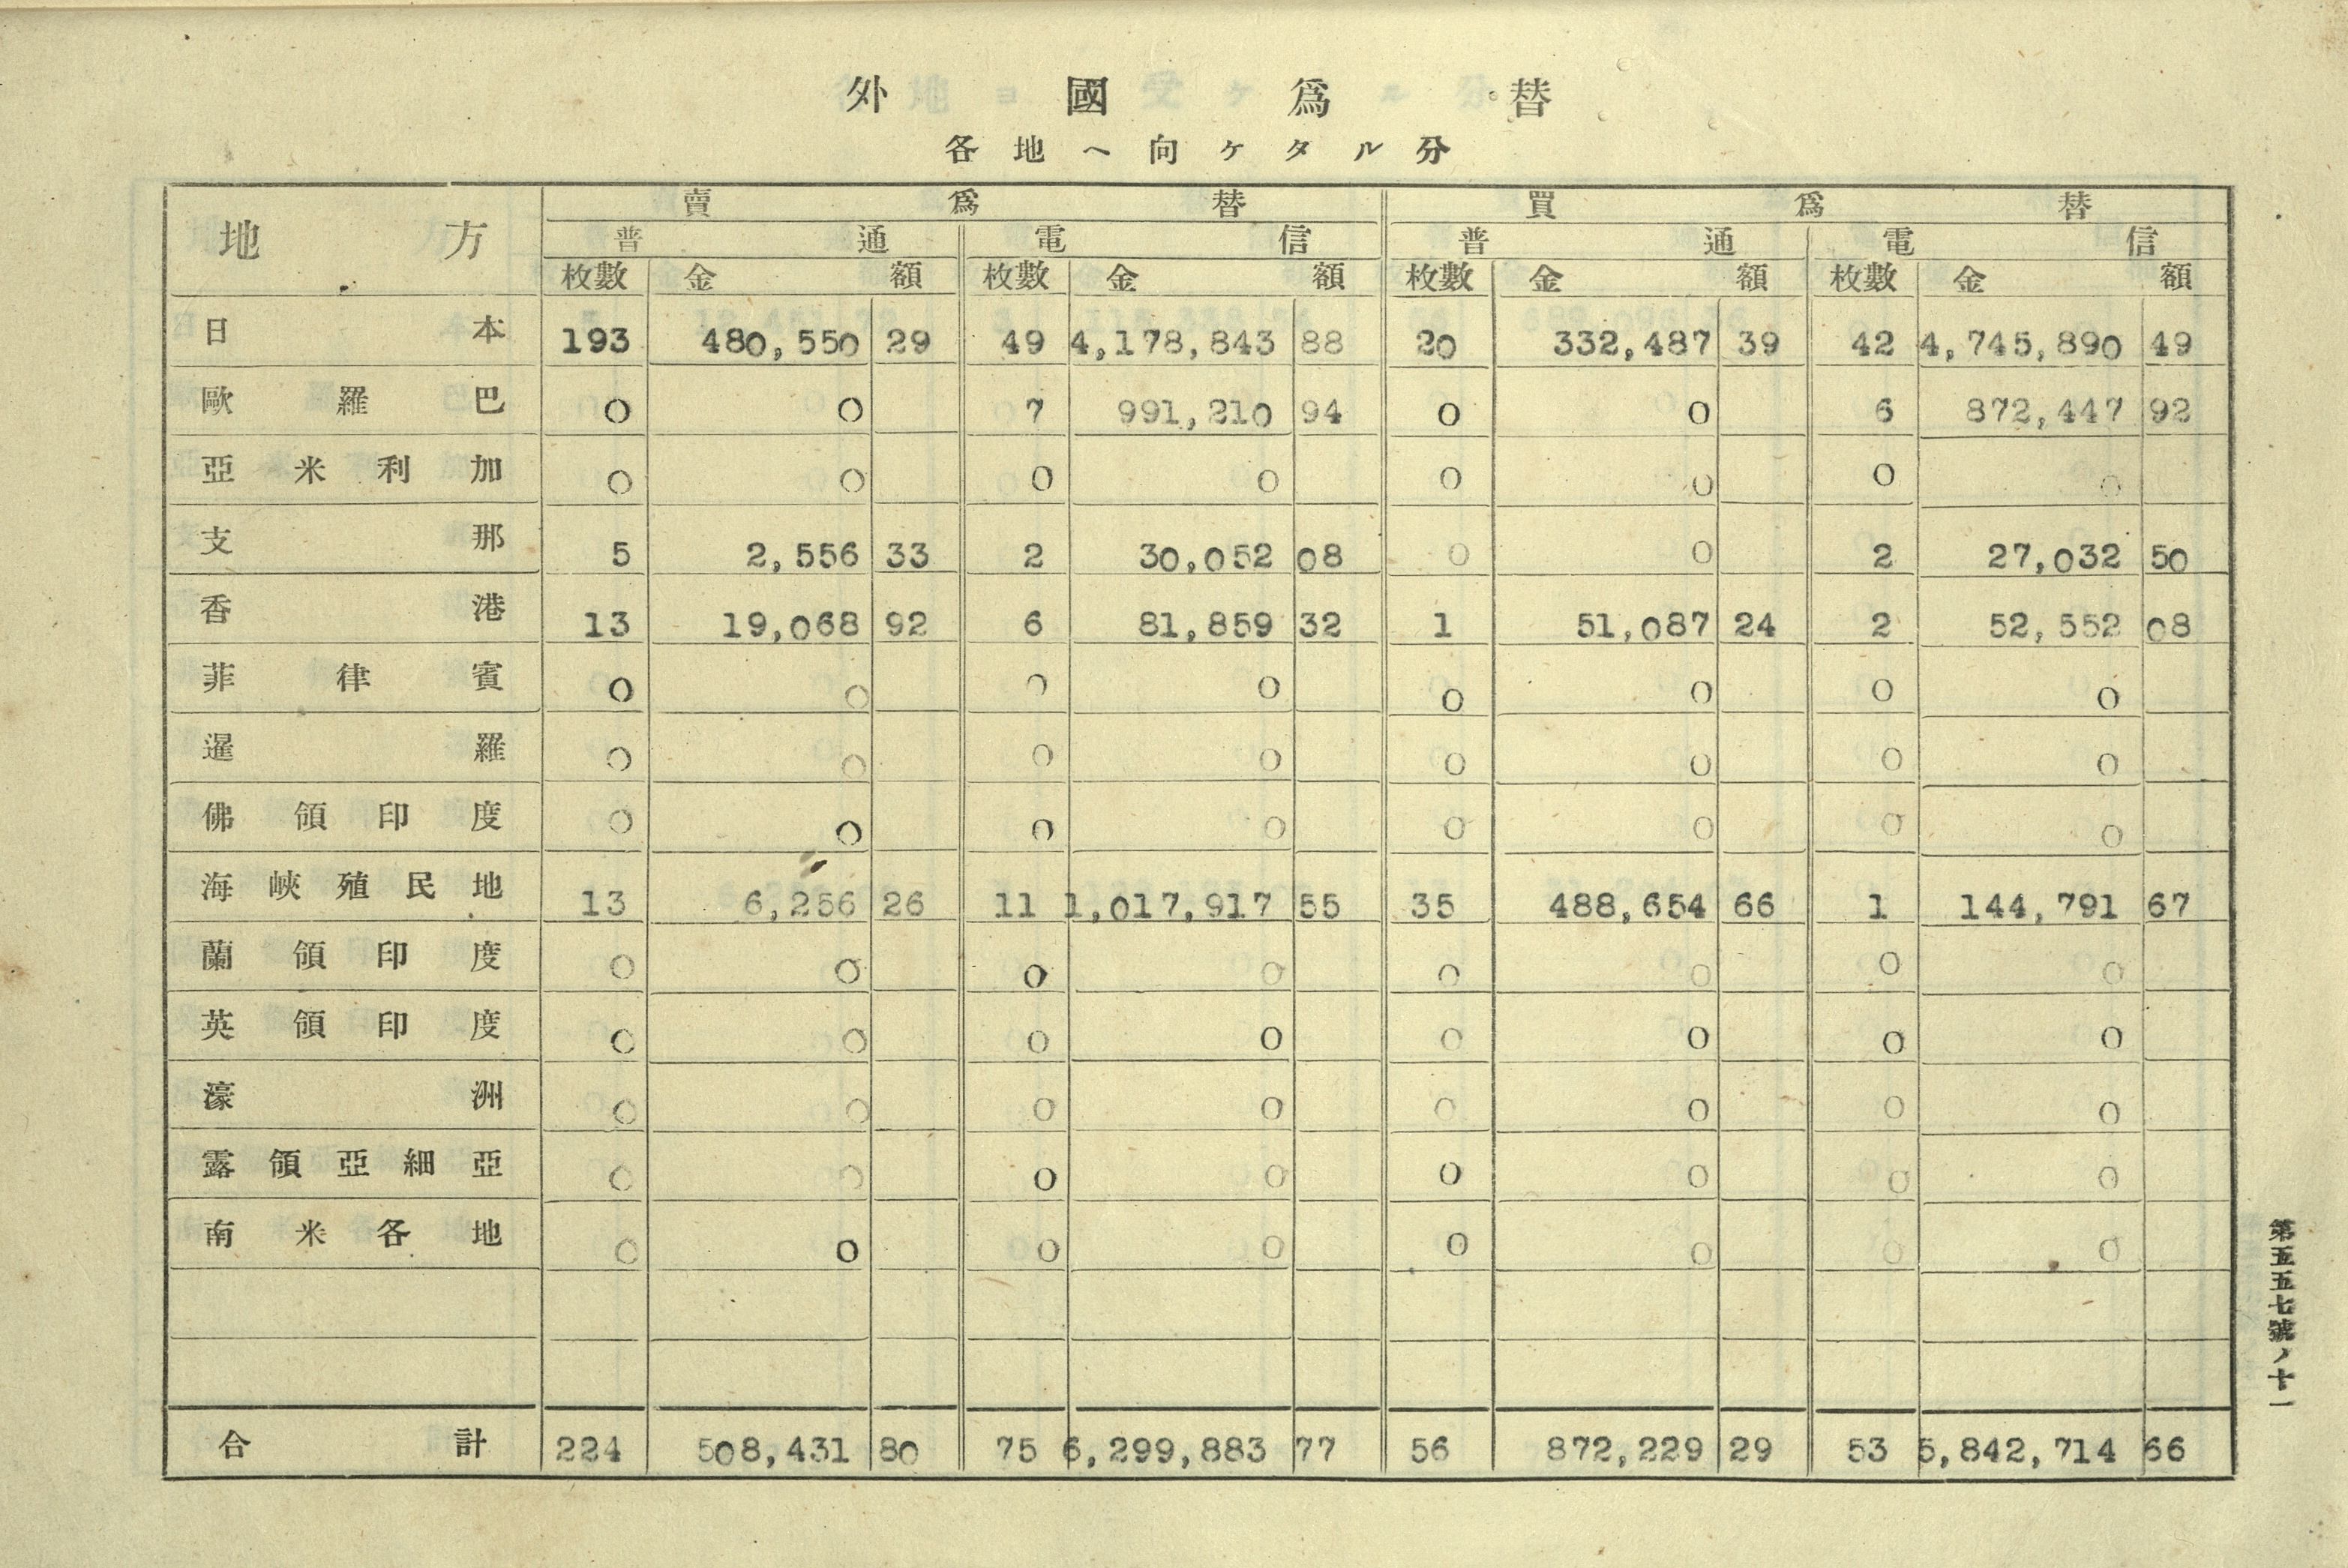 外國爲替
各地ヘ向ケタル分
地方 賣爲替 買爲替
普通 電信 普通 電信
枚數 金額 枚數 金額 枚數 金額 枚數 金額
日本 193 480,550 29 49 4,178,843 88 20 332,487 39 42 4,745,890 49
歐羅巴 0 0 7 991,210 94 0 0 6 872,447 92
亞米利加 0 0 0 0 0 0 0 0
支那 5 2,556 33 2 30,052 08 0 0 2 27,032 50
香港 13 19,068 92 6 81,859 32 1 51,087 24 2 52,552 08
菲律賓 0 0 0 0 0 0 0 0
暹羅 0 0 0 0 0 0 0 0
佛領印度 0 0 0 0 0 0 0 0
海峽殖民地 13 6,256 26 11 1,017,917 55 35 488,654 66 1 144,791 67
蘭領印度 0 0 0 0 0 0 0 0
英領印度 0 0 0 0 0 0 0 0
濠洲 0 0 0 0 0 0 0 0
露領亞細亞 0 0 0 0 0 0 0 0
南米各地 0 0 0 0 0 0 0 0
合計 224 508,431 80 75 6,299,883 77 56 872,229 29 53 5,842,714 66
第五五七號ノ十一